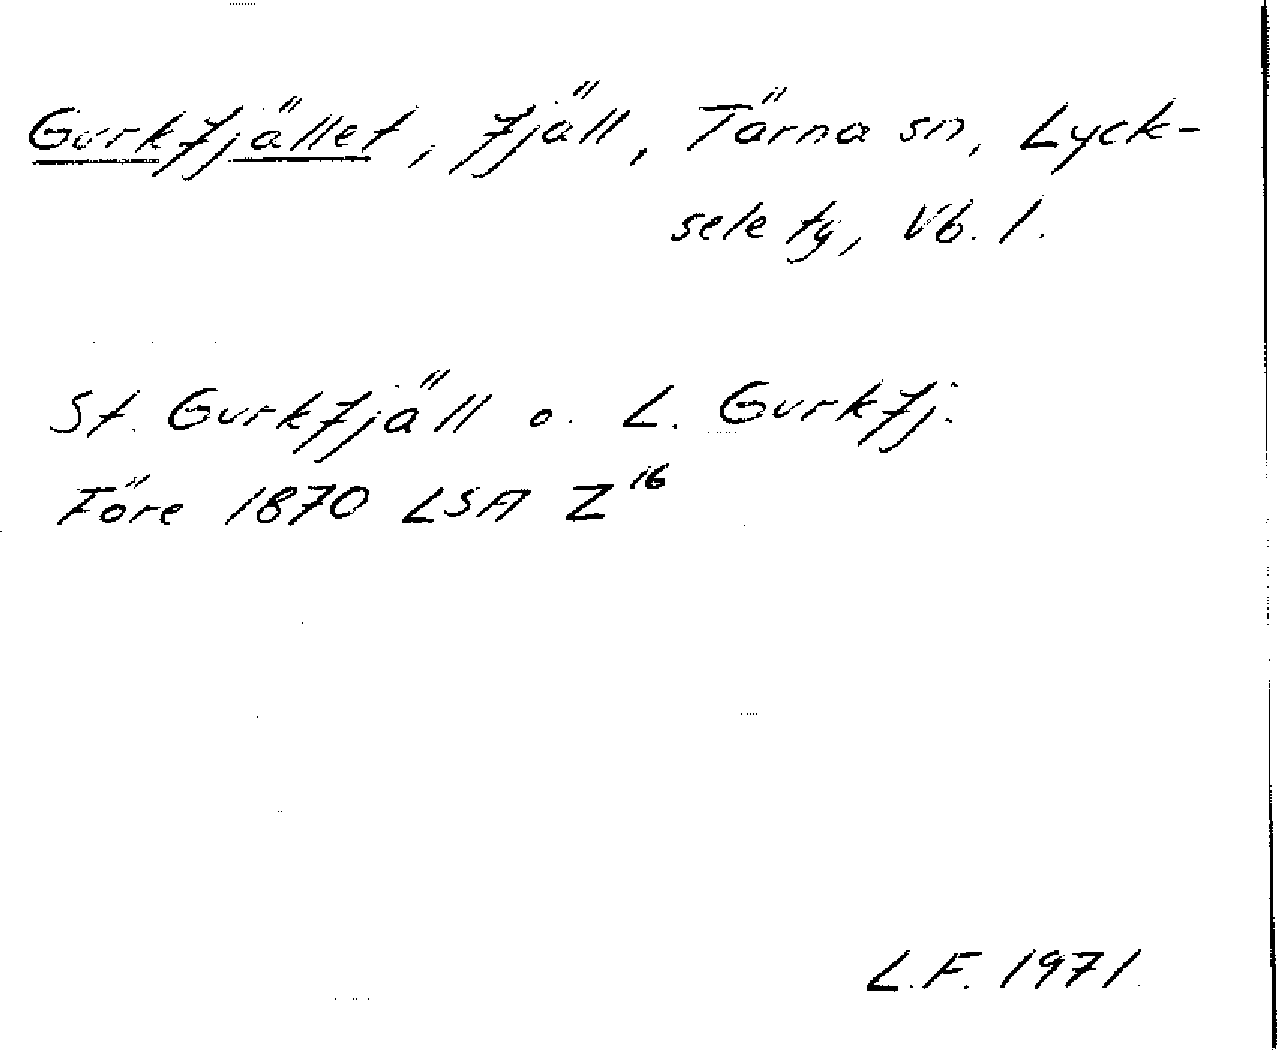 Gurkfjället, fjäll, Tärna sn, Lyck-
sele tg, Vb. l.
St. Gurkfjäll o. L. Gurkfj.
Före 1870 LSA Z¹⁶
L.F. 1971